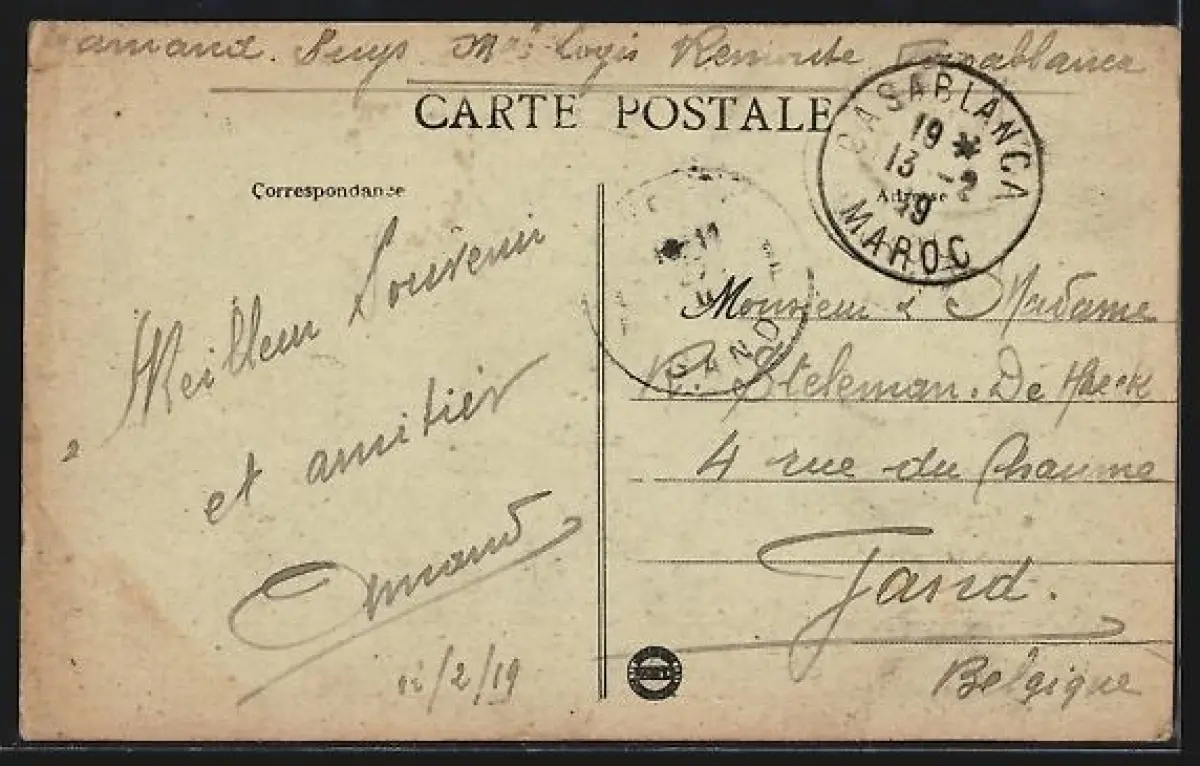 Suys. Mᵃˡ Logis Remonte Casablanca
CARTE POSTALE
Correspondance
Adresse
CASABLANCA
19 *
13 -2
19
MAROC
GAND
Meilleur Souvenir
et amitier
Armand
/2/19
Monsieur & Madame
Steleman. De Haeck
4 rue du Chaume
Gand.
Belgique